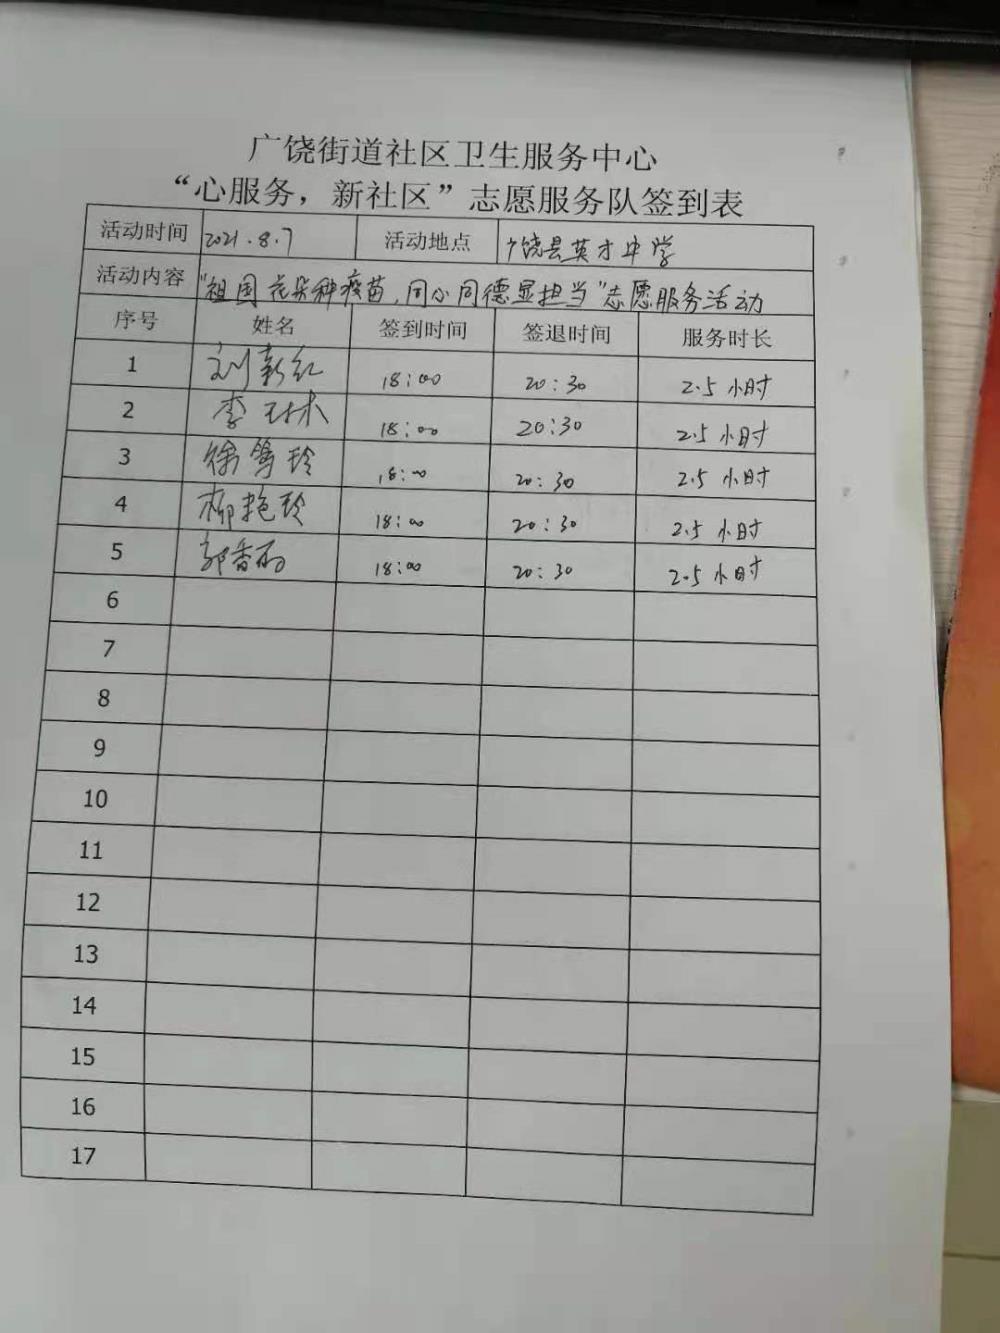 广饶街道社区卫生服务中心
“心服务，新社区”志愿服务队签到表
活动时间 2021.8.7 活动地点 广饶县英才中学
活动内容 “祖国花朵种疫苗，同心同德显担当”志愿服务活动
序号 姓名 签到时间 签退时间 服务时长
1 刘新红 18:00 20:30 2.5小时
2 李 18:00 20:30 2.5小时
3 徐 玲 18:00 20:30 2.5小时
4 柳艳玲 18:00 20:30 2.5小时
5 郭香丽 18:00 20:30 2.5小时
6
7
8
9
10
11
12
13
14
15
16
17